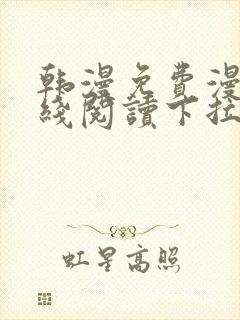 韩漫免费漫
线阅读下拉
虹星高照